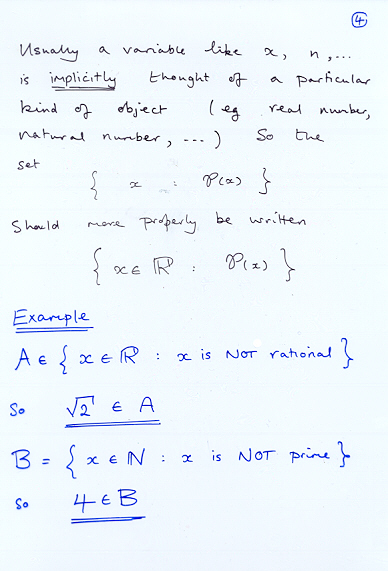 4
Usually a variable like x, n, ...
is implicitly thought of a particular
kind of object (eg real number,
natural number, ...) So the
set
{ x : P(x) }
Should more properly be written
{ x ∈ ℝ : P(x) }
Example
A ∈ { x ∈ ℝ : x is NOT rational }
So √2 ∈ A
B = { x ∈ ℕ : x is NOT prime }
So 4 ∈ B